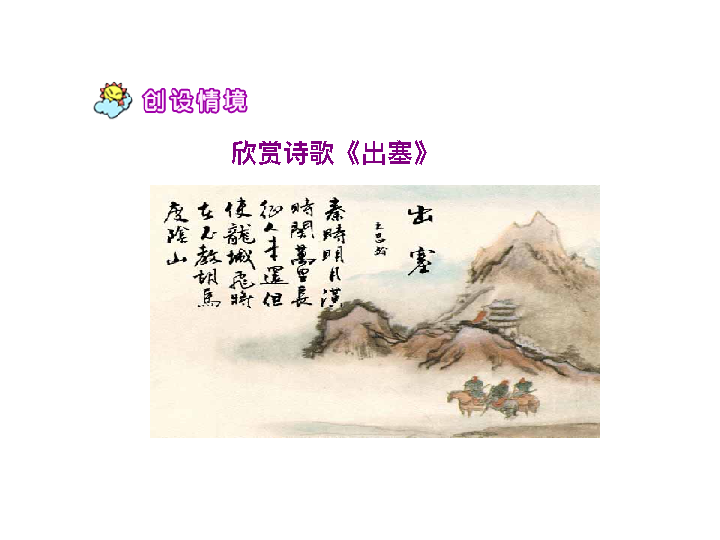 创设情境
欣赏诗歌《出塞》
出塞
王昌齡
秦時明月漢
時關萬里長
征人未還但
使龍城飛將
在不教胡馬
度陰山